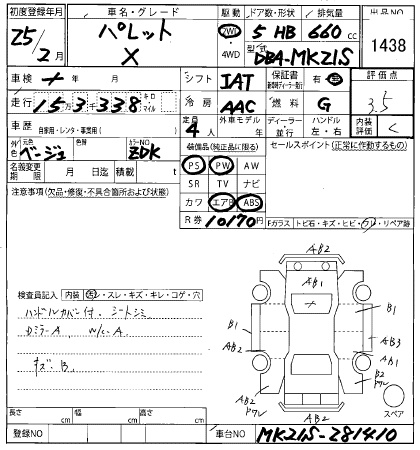 初度登録年月 車名・グレード 駆動 ドア数・形状 排気量 出品NO
25年 パレット 2WD 5 HB 660cc 1438
2月 X ・4WD 型式 DBA-MK21S
車検 年 月 シフト IAT 保証書 有 評価点
走行 15万3千338 キロ・マイル 冷房 AAC 燃料 G 3.5
車歴 自家用・レンタ・事業用( ) 定員 4人 外車モデル 年 ディーラー・並行 ハンドル 左・右 内装評価 C
外色 元色 ベージュ 色替 カラーNO ZDK 装備品(純正品に限る) セールスポイント(正常に作動するもの)
名義変更期限 月 日迄 積載 t PS PW AW
注意事項(欠品・修復・不具合箇所および状態) SR TV ナビ
カワ エアB ABS
R券 10170円 Fガラス トビ石・キズ・ヒビ・ワレ・リペア跡
AB2
AB1
検査員記入 内装 ・スレ・キズ・キレ・コゲ・穴
ハンドルカバー付 シートシミ
DミラーA W/C-A
キズ B
B1
B1
AB2
AB3
AB1
B2
ワレ
AB2
ワレ
AB2
スペア
長さ cm 幅 cm 高さ cm
登録NO 車台NO MK21S-281410